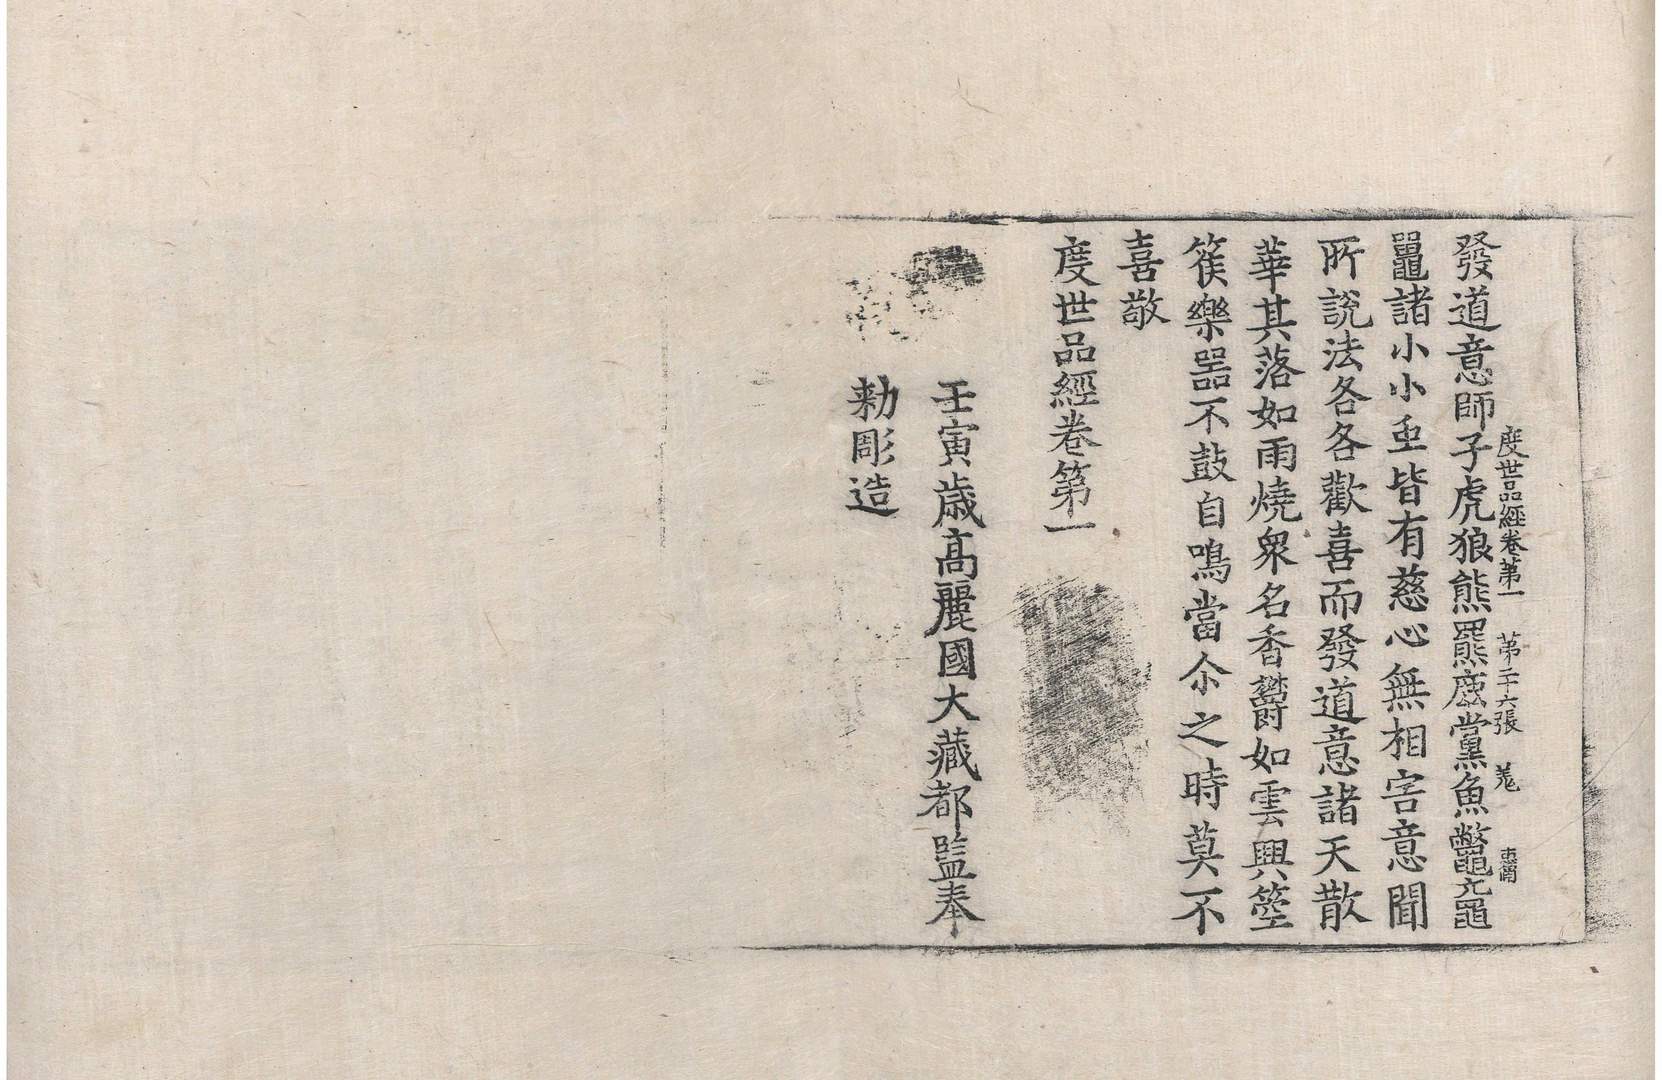 度世品經卷第一 第二十六張 羗
發道意師子虎狼熊羆鹿黨魚鼈黿
鼉諸小小虫皆有慈心無相害意聞
所說法各各歡喜而發道意諸天散
華其落如雨燒衆名香欝如雲興箜
篌樂噐不鼓自鳴當尒之時莫不
喜敬
度世品經卷第一
壬寅歲高麗國大藏都監奉
勑彫造